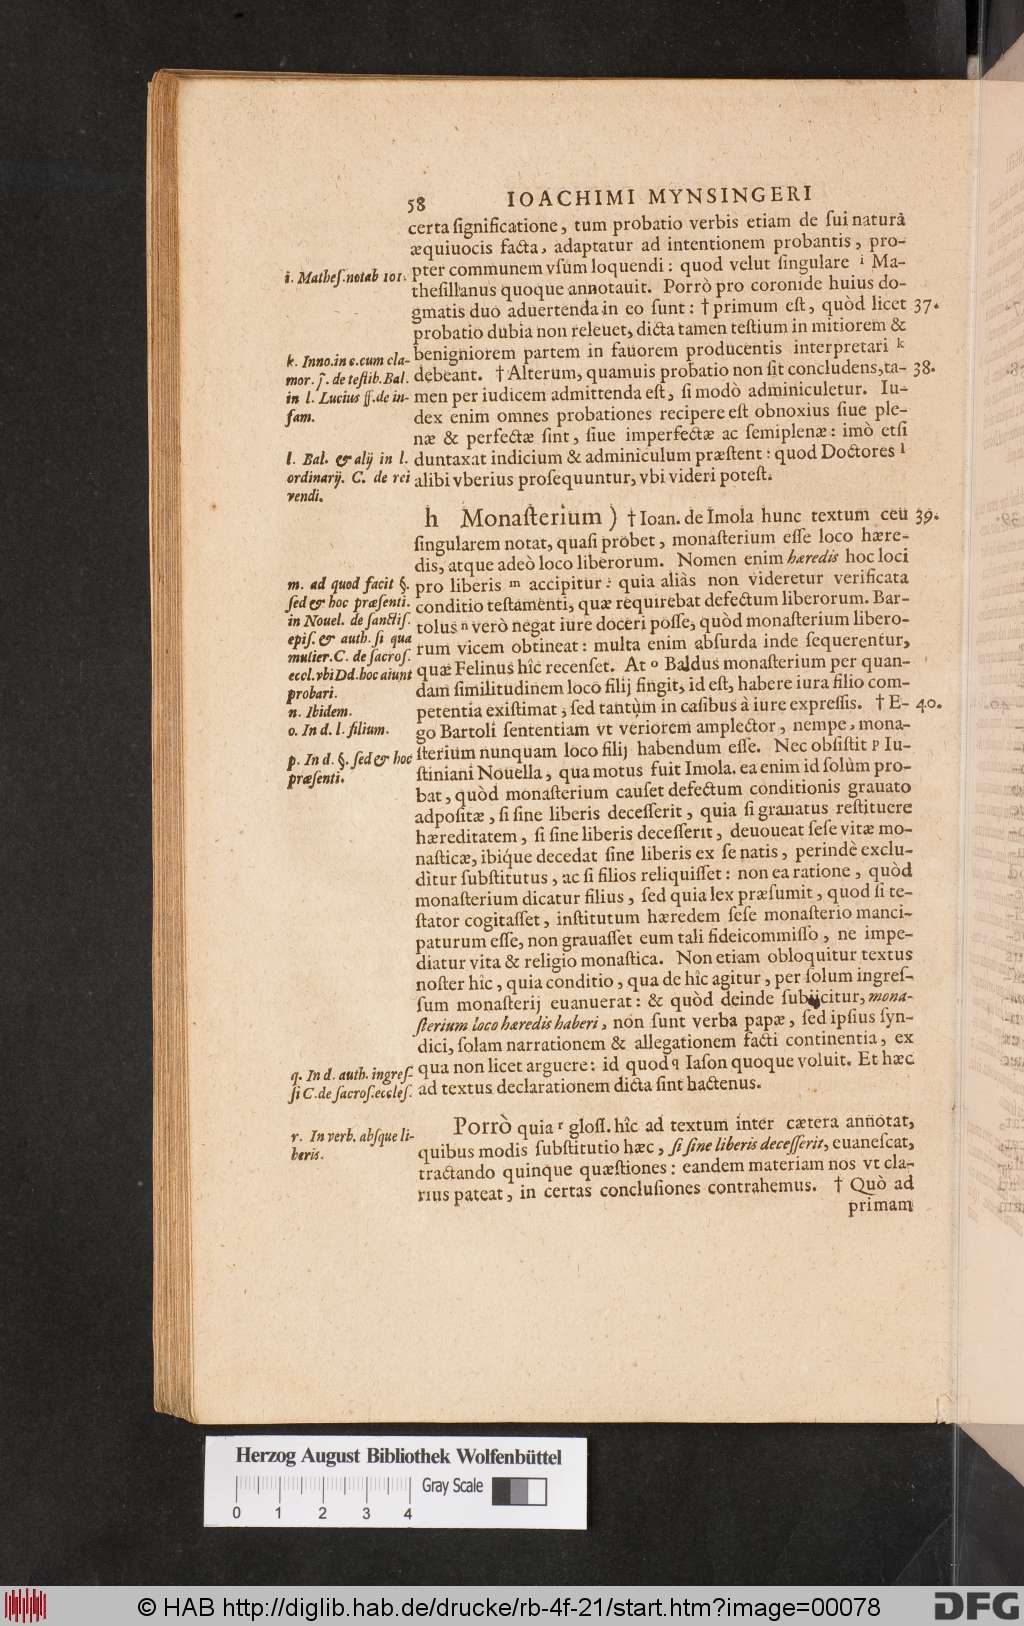 58 IOACHIMI MYNSINGERI
certa ſignificatione, tum probatio verbis etiam de ſui naturâ
æquiuocis facta, adaptatur ad intentionem probantis, pro-
pter communem vſum loquendi: quod velut ſingulare i Ma-
theſillanus quoque annotauit. Porrò pro coronide huius do-
gmatis duo aduertenda in eo ſunt: † primum eſt, quòd licet 37.
probatio dubia non releuet, dicta tamen teſtium in mitiorem &
benigniorem partem in fauorem producentis interpretari k
debeant. † Alterum, quamuis probatio non ſit concludens, ta- 38.
men per iudicem admittenda eſt, ſi modò adminiculetur. Iu-
dex enim omnes probationes recipere eſt obnoxius ſiue ple-
næ & perfectæ ſint, ſiue imperfectæ ac ſemiplenæ: imò etſi
duntaxat indicium & adminiculum præſtent: quod Doctores l
alibi vberius proſequuntur, vbi videri poteſt.
i. Matheſ. notab 101.
k. Inno. in c. cum cla-
mor. j. de teſtib. Bal.
in l. Lucius ff. de in-
fam.
l. Bal. & alij in l.
ordinarij. C. de rei
vendi.
h Monaſterium ) † Ioan. de Imola hunc textum ceu 39.
ſingularem notat, quaſi probet, monaſterium eſſe loco hære-
dis, atque adeò loco liberorum. Nomen enim hæredis hoc loci
pro liberis m accipitur: quia aliàs non videretur verificata
conditio teſtamenti, quæ requirebat defectum liberorum. Bar-
tolus n verò negat iure doceri poſſe, quòd monaſterium libero-
rum vicem obtineat: multa enim abſurda inde ſequerentur,
quæ Felinus hîc recenſet. At o Baldus monaſterium per quan-
dam ſimilitudinem loco filij fingit, id eſt, habere iura filio com-
petentia exiſtimat, ſed tantùm in caſibus à iure expreſſis. † E- 40.
go Bartoli ſententiam vt veriorem amplector, nempe, mona-
ſterium nunquam loco filij habendum eſſe. Nec obſiſtit p Iu-
ſtiniani Nouella, qua motus fuit Imola. ea enim id ſolùm pro-
bat, quòd monaſterium cauſet defectum conditionis grauato
adpoſitæ, ſi ſine liberis deceſſerit, quia ſi grauatus reſtituere
hæreditatem, ſi ſine liberis deceſſerit, deuoueat ſeſe vitæ mo-
naſticæ, ibíque decedat ſine liberis ex ſe natis, perindè exclu-
ditur ſubſtitutus, ac ſi filios reliquiſſet: non ea ratione, quòd
monaſterium dicatur filius, ſed quia lex præſumit, quod ſi te-
ſtator cogitaſſet, inſtitutum hæredem ſeſe monaſterio manci-
paturum eſſe, non grauaſſet eum tali fideicommiſſo, ne impe-
diatur vita & religio monaſtica. Non etiam obloquitur textus
noſter hîc, quia conditio, qua de hîc agitur, per ſolum ingreſ-
ſum monaſterij euanuerat: & quòd deinde ſubijcitur, mona-
ſterium loco hæredis haberi, non ſunt verba papæ, ſed ipſius ſyn-
dici, ſolam narrationem & allegationem facti continentia, ex
qua non licet arguere: id quod q Iaſon quoque voluit. Et hæc
ad textus declarationem dicta ſint hactenus.
m. ad quod facit §.
ſed & hoc præſenti.
in Nouel. de ſanctiſ.
epiſ. & auth. ſi qua
mulier. C. de ſacroſ.
eccl. vbi Dd. hoc aiunt
probari.
n. Ibidem.
o. In d. l. filium.
p. In d. §. ſed & hoc
præſenti.
q. In d. auth. ingreſ-
ſi C. de ſacroſ. eccleſ.
Porrò quia r gloſſ. hîc ad textum inter cætera annotat,
quibus modis ſubſtitutio hæc, ſi ſine liberis deceſſerit, euaneſcat,
tractando quinque quæſtiones: eandem materiam nos vt cla-
rius pateat, in certas concluſiones contrahemus. † Quò ad
primam
r. In verb. abſque li-
beris.
Herzog August Bibliothek Wolfenbüttel
Gray Scale
0 1 2 3 4
© HAB http://diglib.hab.de/drucke/rb-4f-21/start.htm?image=00078
DFG